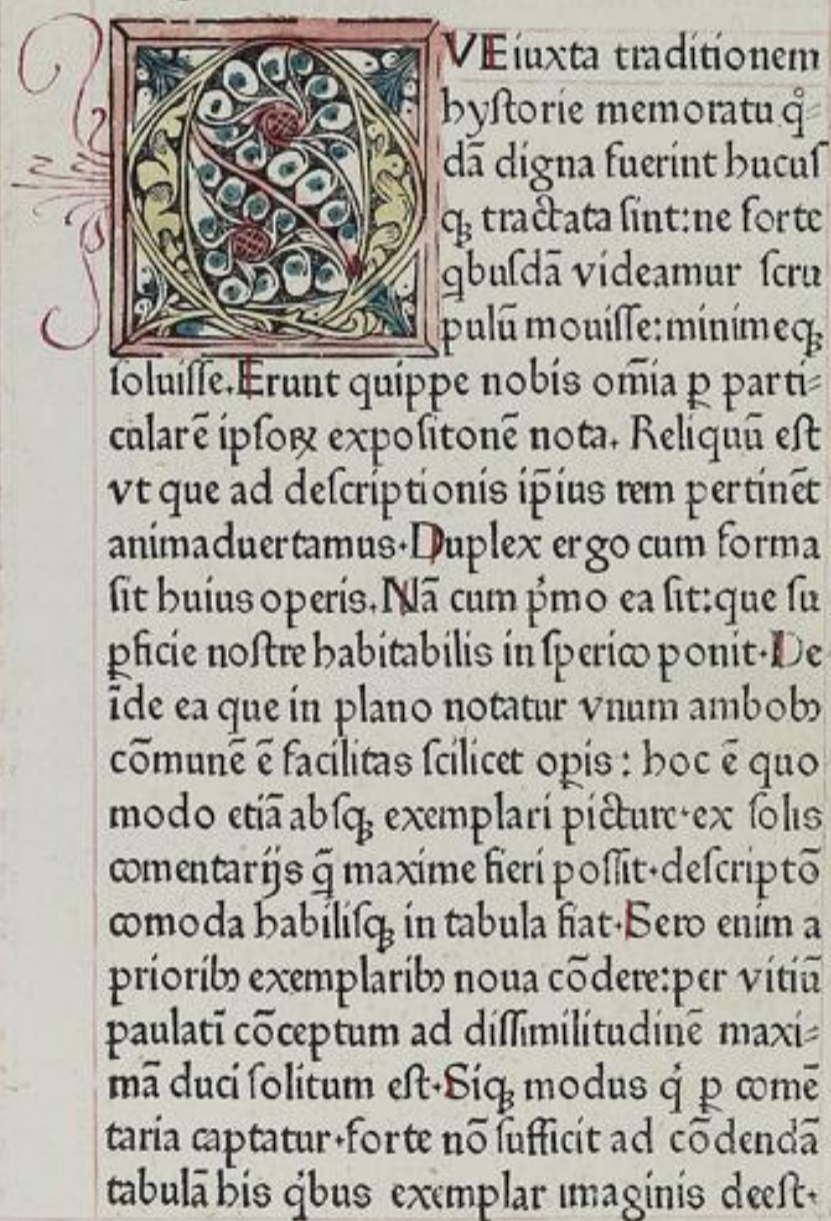 QVE iuxta traditionem
hyſtorie memoratu q̊⸗
dā digna fuerint hucuſ
qꝫ tractata ſint: ne forte
qbuſdā videamur ſcru
pulū mouiſſe: minimeqꝫ
ſoluiſſe. Erunt quippe nobis om̄ia ꝑ parti⸗
cularē ipſoꝝ expoſitonē nota. Reliquū eſt
vt que ad deſcriptionis ip̄ius rem pertinēt
animaduertamus. Duplex ergo cum forma
ſit huius operis. Nā cum pͥmo ea ſit: que ſu
ꝑficie noſtre habitabilis in ſperico ponit. De
īde ea que in plano notatur vnum ambobꝰ
cōmunē ē facilitas ſcilicet oꝑis: hoc ē quo
modo etiā abſqꝫ exemplari picture. ex ſolis
comentarijs q̄ maxime fieri poſſit. deſcriptō
comoda habiliſqꝫ in tabula fiat. Sero enim a
prioribꝰ exemplaribꝰ noua cōdere: per vitiū
paulatī cōceptum ad diſſimilitudinē maxi⸗
mā duci ſolitum eſt. Siqꝫ modus qͥ ꝑ comē
taria captatur. forte nō ſufficit ad cōdendā
tabulā his qͥbus exemplar imaginis deeſt.